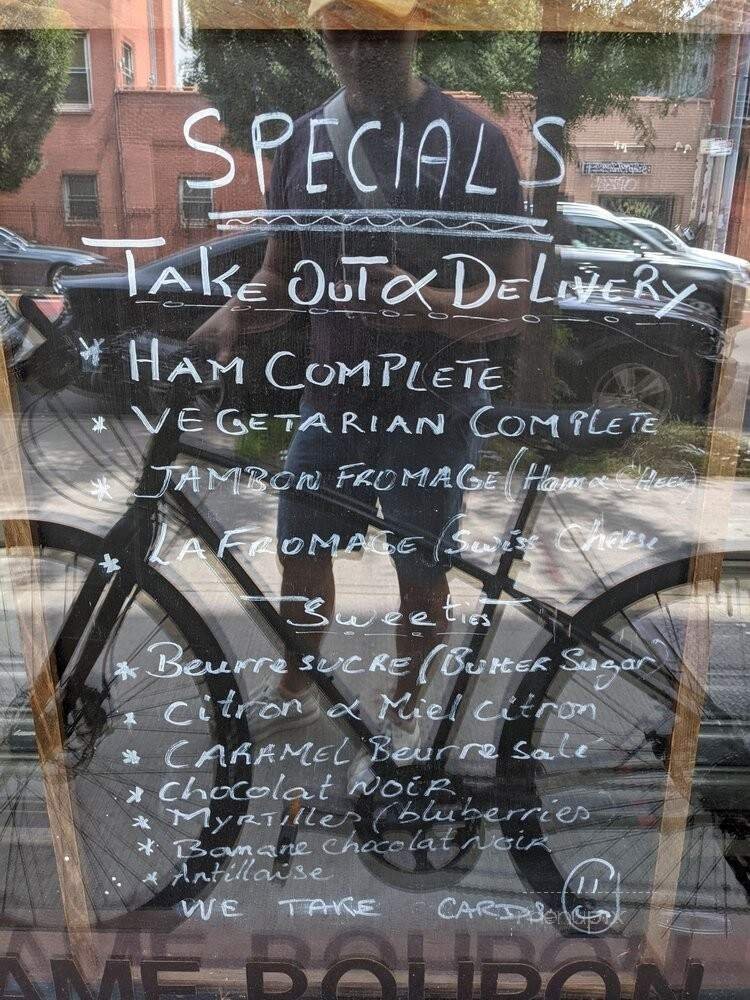 SPECIALS
TAKE OUT & DELIVERY
* HAM COMPLETE
* VEGETARIAN COMPLETE
* JAMBON FROMAGE (Ham & CHEES)
* LA FROMAGE (Swiss Cheese
Sweeties
* Beurre SUCRE / (BUTTER Sugar)
* Citron & Miel Citron
* CARAMEL Beurre salé
* Chocolat NOIR
* MYRTILLES / bluberries
* Banane chocolat Noir
* Antillaise
WE TAKE CARDS
menupix
AME POUPON